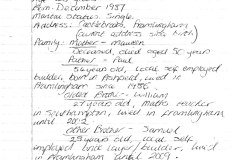 Born: December 1987
Marital Status: Single.
Address: Framlingham
(current address since birth)
Family: Mother - Maureen
Deceased, aged 50 years
Father - Paul
54 years old, Local self employed
builder, born in Ashfield, lived in
Framlingham since 1986
older Brother - William
27 years old, Maths teacher
in Southampton, lived in Framlingham
until 2002.
other Brother - Samuel
23 years old, local self
employed brick layer/builder, lived
in Framlingham until 2009.